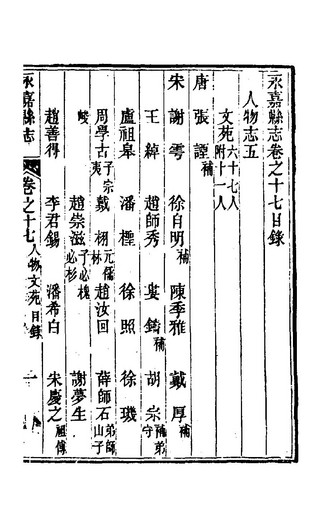 永嘉縣志卷之十七目錄
人物志五
文苑六十七人附十一人
唐 張諲補
宋 謝雩 徐自明補 陳季雅 戴厚補
王綽 趙師秀 婁鏻補 胡宗補弟守
盧祖皋 潘檉 徐照 徐璣
周學古子宗夷 戴栩元儒林 趙汝回 薛師石弟師山子
峻 趙崇滋子必槐必杉 謝夢生
趙善得 李君錫 潘希白 朱慶之祖傳
永嘉縣志 卷之十七人物 文苑 目錄 一